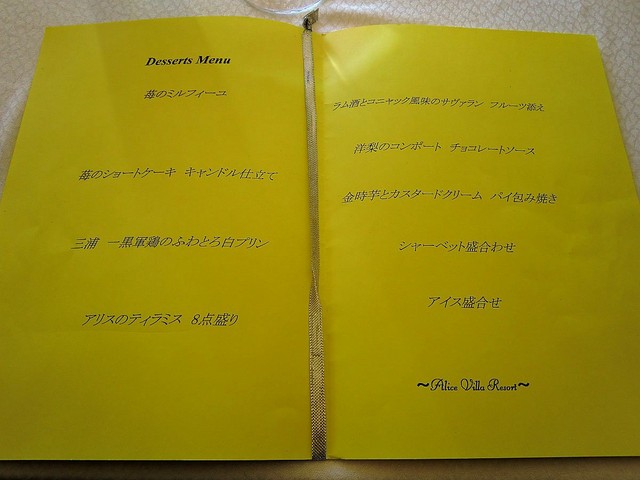 Desserts Menu
苺のミルフィーユ
苺のショートケーキ キャンドル仕立て
三浦 一黒軍鶏のふわとろ白プリン
アリスのティラミス 8点盛り
ラム酒とコニャック風味のサヴァラン フルーツ添え
洋梨のコンポート チョコレートソース
金時芋とカスタードクリーム パイ包み焼き
シャーベット盛合わせ
アイス盛合せ
～Alice Villa Resort～